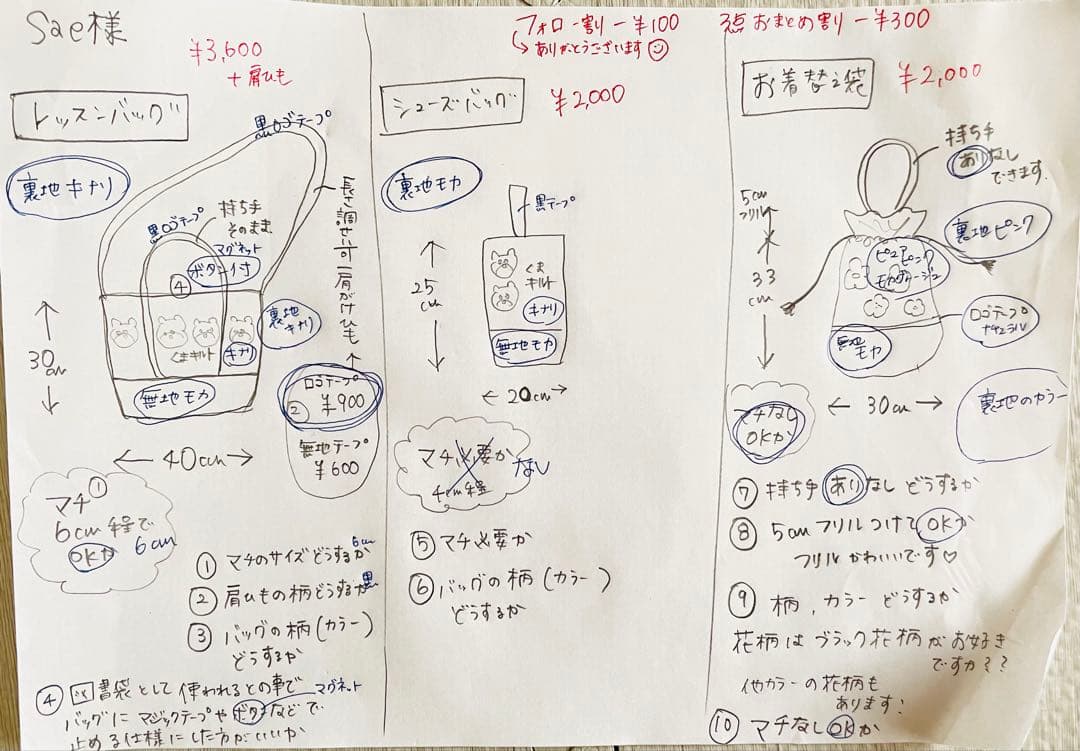 Sae様
¥3,600
+肩ひも
レッスンバッグ
黒ロゴテープ
裏地キナリ
黒ロゴテープ
持ち手
そのまま
マグネット
ボタン付
④
長さ調せい可 肩がけひも
30cm
くまキルト
キナリ
裏地
キナリ
無地モカ
40cm
ロゴテープ
② ¥900
無地テープ
¥600
マチ①
6cm程で
OKか 6cm
① マチのサイズどうするか 6cm
② 肩ひもの柄どうするか 黒
③ バッグの柄(カラー)
どうするか
④ 図書袋として使われるとの事で
マグネット
バッグにマジックテープやボタンなどで
止める仕様にした方がいいか
フォロー割り -¥100
ありがとうございます
シューズバッグ
¥2,000
裏地モカ
黒テープ
25
cm
くま
キルト
キナリ
無地モカ
20cm
マチ必要か
4cm程
なし
⑤ マチ必要か
⑥ バッグの柄(カラー)
どうするか
3点おまとめ割り -¥300
お着替え袋
¥2,000
持ち手
ありなし
できます.
5cm
フリル
33
cm
裏地ピンク
ピュアピンク
モカベージュ
ロゴテープ
ナチュラル
無地
モカ
マチなし
OKか
30cm
裏地のカラー
⑦ 持ち手ありなしどうするか
⑧ 5cmフリルつけてOKか
フリルかわいいです♡
⑨ 柄,カラーどうするか
花柄はブラック花柄がお好き
ですか??
他カラーの花柄も
あります!
⑩ マチなしOKか